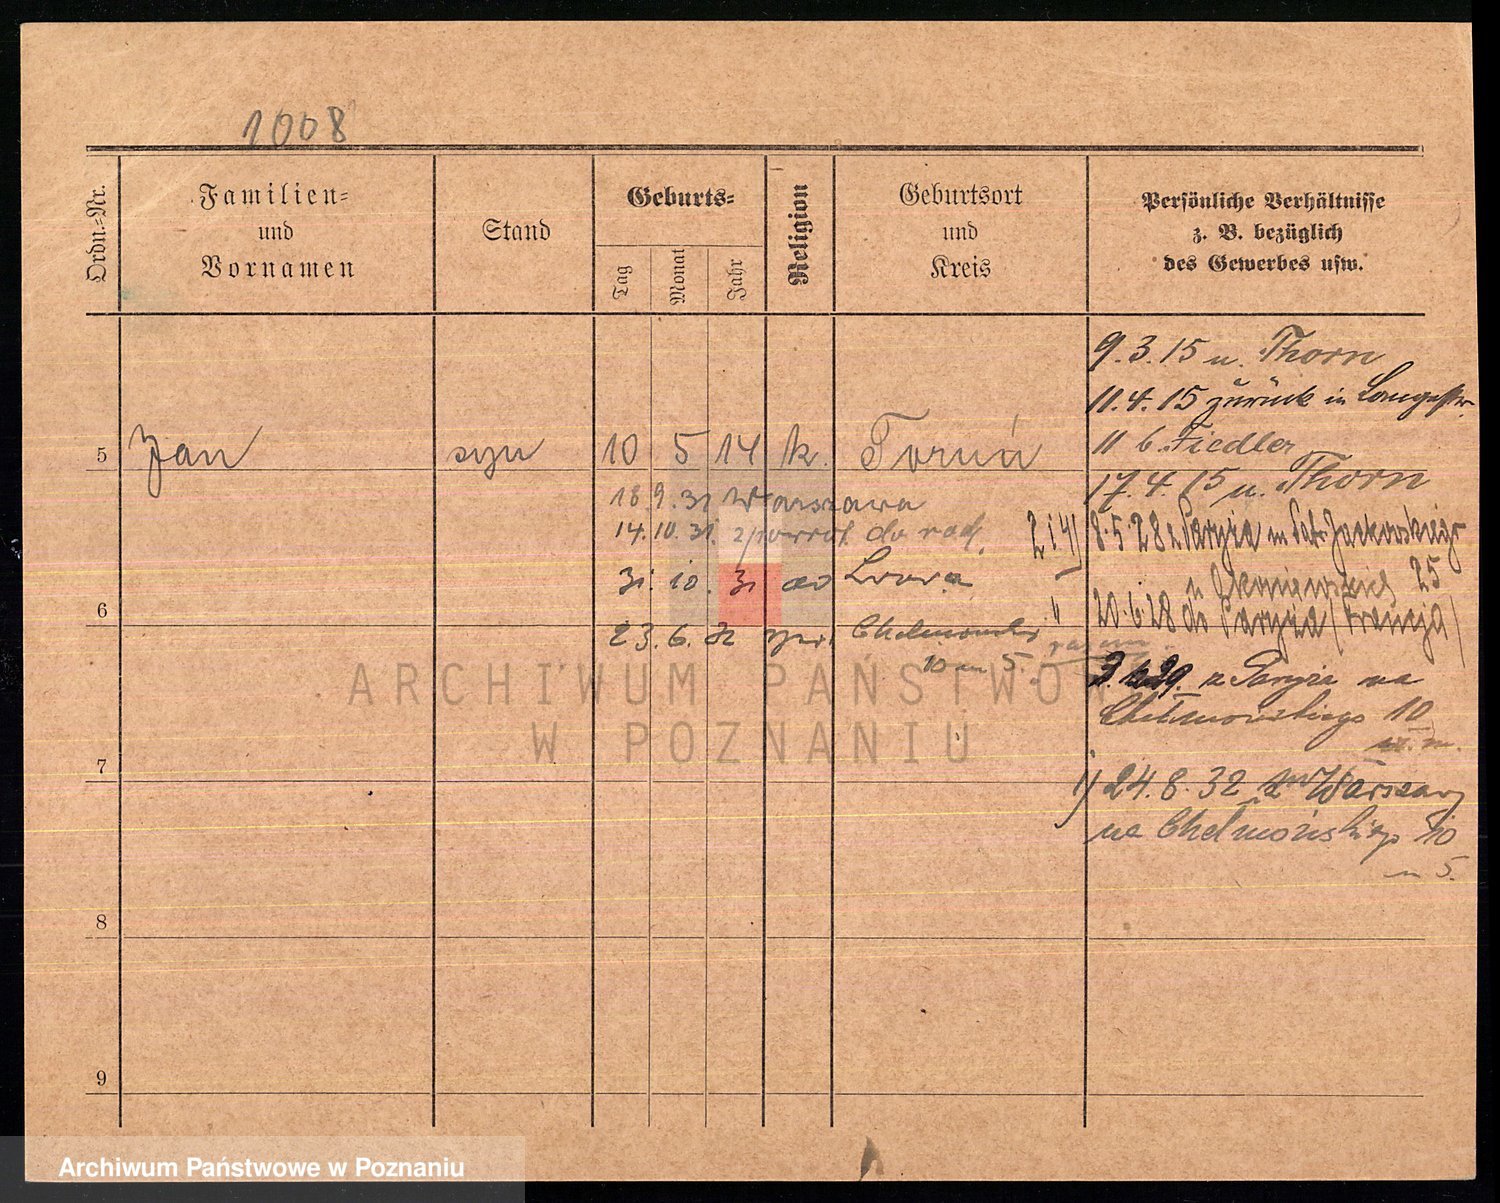 1008
Ordn.-Nr.
Familien-
und
Vornamen
Stand
Geburts-
Tag
Monat
Jahr
Religion
Geburtsort
und
Kreis
Persönliche Verhältnisse
z. B. bezüglich
des Gewerbes usw.
9.3.15 n. Thorn
11.4.15 zurück in
11 b. Fiedler
17.4.15 n. Thorn
5 Jan syn 10 5 14 k. Toruń
18.9.31 Warszawa
14.10.31. zpowrot do rod.
31.10.31 do Lwowa
23.6.32 Chełmońskiego
10 m 5.
2 i 4) 8.5.28 z Paryża Jackowskiego
25
" 20.6.28 do Paryża (Francja)
29. z Paryża na
Chełmońskiego 10
1) 24.8.32 z Warszawy
na Chełmońskiego 10
m 5.
6
7
8
9
ARCHIWUM PAŃSTWOWE
W POZNANIU
Archiwum Państwowe w Poznaniu